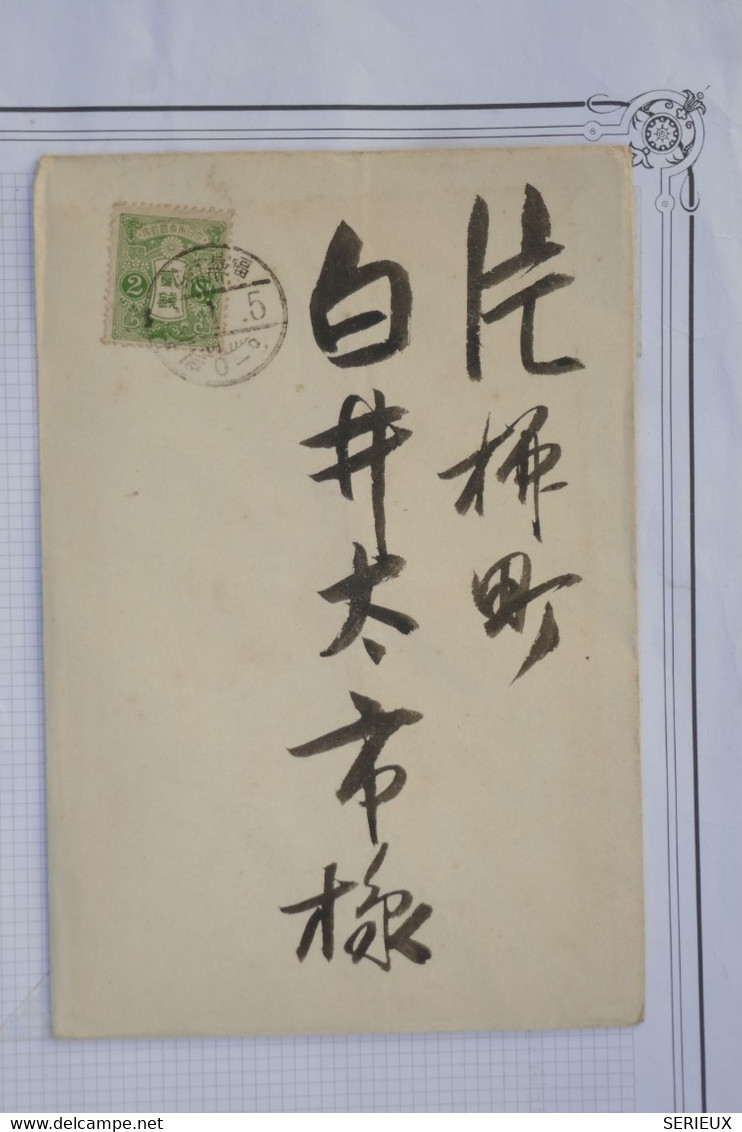 片柿町
白井太市様
2
貳錢
5
delcampe.net
SERIEUX